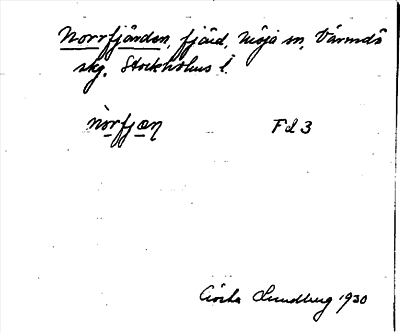 Norrfjärden, fjärd, Möja sn, Värmdö
skg. Stockholms l.
nòrfjæn F d 3
Gösta Lundberg 1930